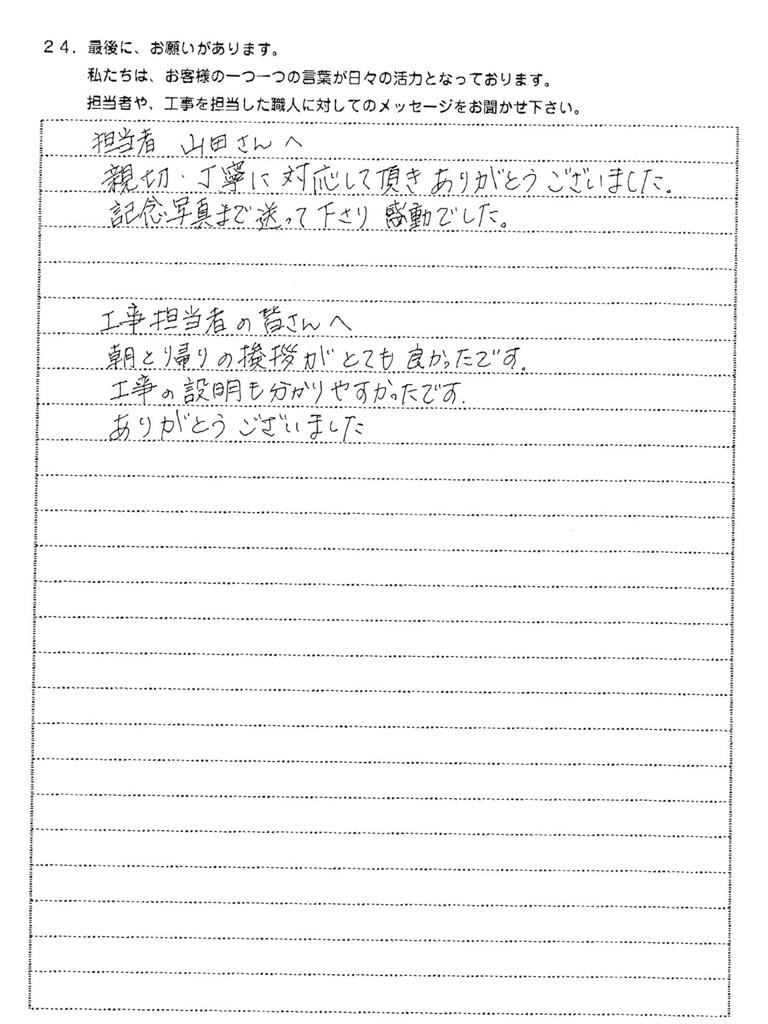 24．最後に、お願いがあります。
私たちは、お客様の一つ一つの言葉が日々の活力となっております。
担当者や、工事を担当した職人に対してのメッセージをお聞かせ下さい。
担当者 山田さんへ
親切・丁寧に対応して頂きありがとうございました。
記念写真まで送って下さり感動でした。
工事担当者の皆さんへ
朝と帰りの挨拶がとても良かったです。
工事の説明も分かりやすかったです.
ありがとうございました